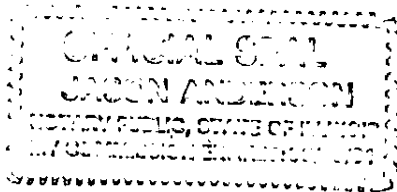 OFFICIAL SEAL
JASON ANDERSON
NOTARY PUBLIC, STATE OF ILLINOIS
MY COMMISSION EXPIRES